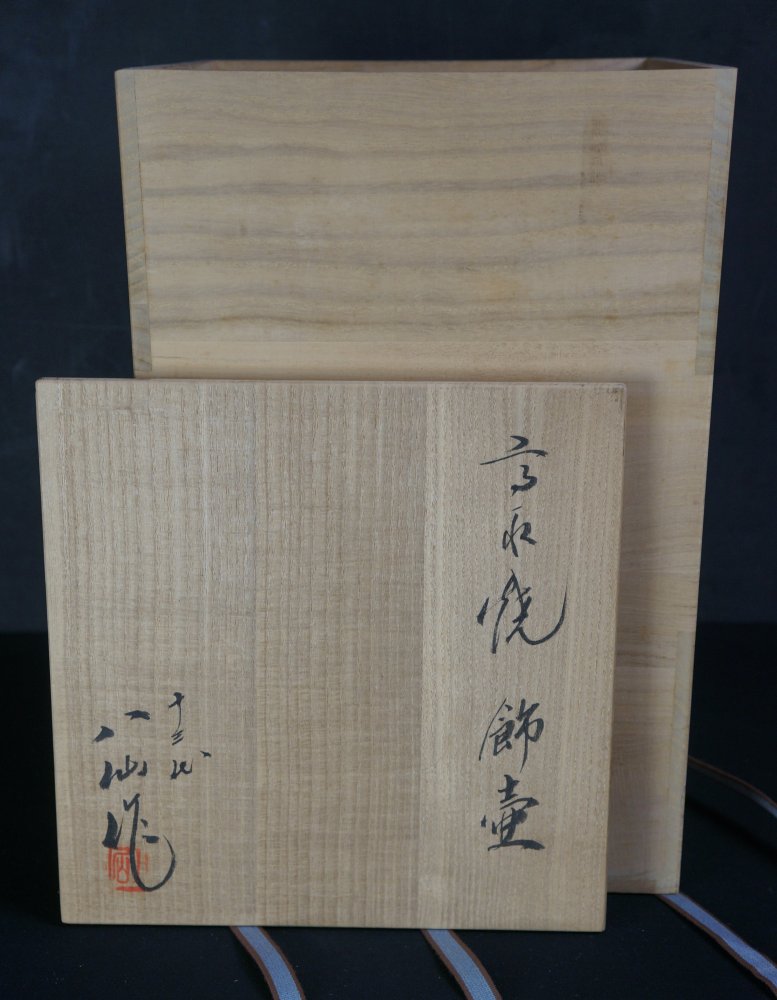 高取焼 飾壷
十三代
八仙作